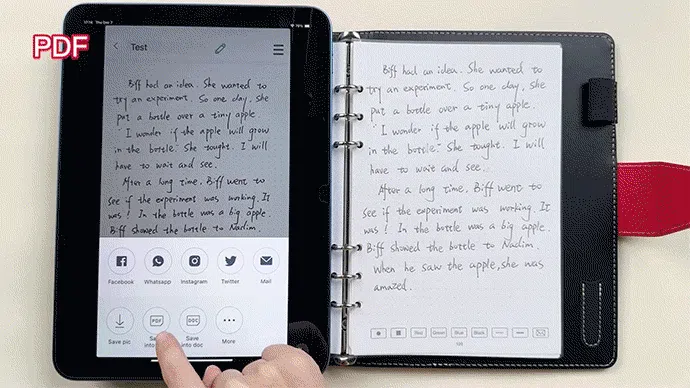 PDF
17:16 Thu Dec 7
79%
Test
Biff had an idea. She wanted to
try an experiment. So one day, she
put a bottle over a tiny apple.
"I wonder if the apple will grow
in the bottle." She tought. I will
have to wait and see.
After a long time, Biff went to
see if the experiment was working. It
was! In the bottle was a big apple.
Biff showed the bottle to Nadim.
Facebook
Whatsapp
Instagram
Twitter
Mail
PDF
DOC
Save pic
Save
into doc
More
Biff had an idea. She wanted to
try an experiment. So one day, she
put a bottle over a tiny apple.
"I wonder if the apple will grow
in the bottle." She tought. I will
have to wait and see.
After a long time, Biff went to
see if the experiment was working. It
was! In the bottle was a big apple.
Biff showed the bottle to Nadim.
When he saw the apple, she was
amazed.
Red
Green
Blue
Black